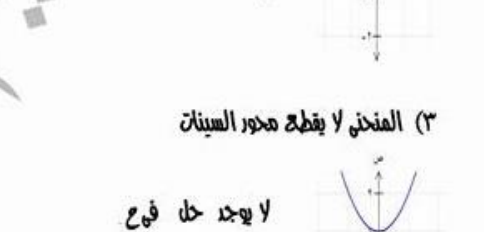 ٢-
٣) المنحنى لا يقطع محور السينات
ص
٢
لا يوجد حل في ح